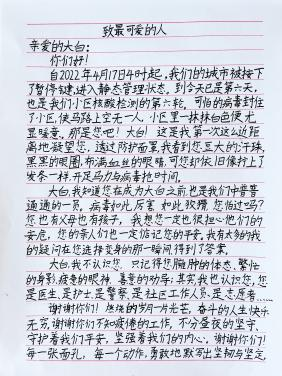 致最可爱的人
亲爱的大白：
你们好！
自2022年4月17日4时起，我们的城市被按下
了暂停键，进入静态管理状态，到今天已是第六天，
也是我们小区核酸检测的第六轮，可怕的病毒封住
了小区，使马路上空无一人，小区里一抹抹白色便尤
显暖意，那是您吧！大白！这是我第一次这么近距
离地凝望您，透过防护面罩我看到您豆大的汗珠，
黑黑的眼圈，布满血丝的眼睛，可您却依旧像拧上了
发条一样，开足马力与病毒抢时间。
大白，我知道您在成为大白之前也是我们中普普
通通的一员，病毒如此厉害，如此狡猾，您怕过吗？
您也有父母也有孩子，我想您一定也很担心他们的
安危，您的亲人们也一定惦记您的平安，我有太多的我
的疑问在您选择变身的那一瞬间得到了答案。
大白，我不认识您，只记得您臃肿的体态，繁忙
的身影，疲惫的眼神，喜悦的动容；其实我也认识您，您
是医生、是护士、是警察、是社区工作人员、是志愿者……
谢谢你们！燃烧的岁月一片光芒，奋斗的人生快乐
无穷，谢谢你们不知疲倦的工作，不分昼夜的坚守，
守护着我们平安，坚强着我们的内心，谢谢你们！
每一张面孔，每一个动作，勇敢地默写出坚韧与坚定，